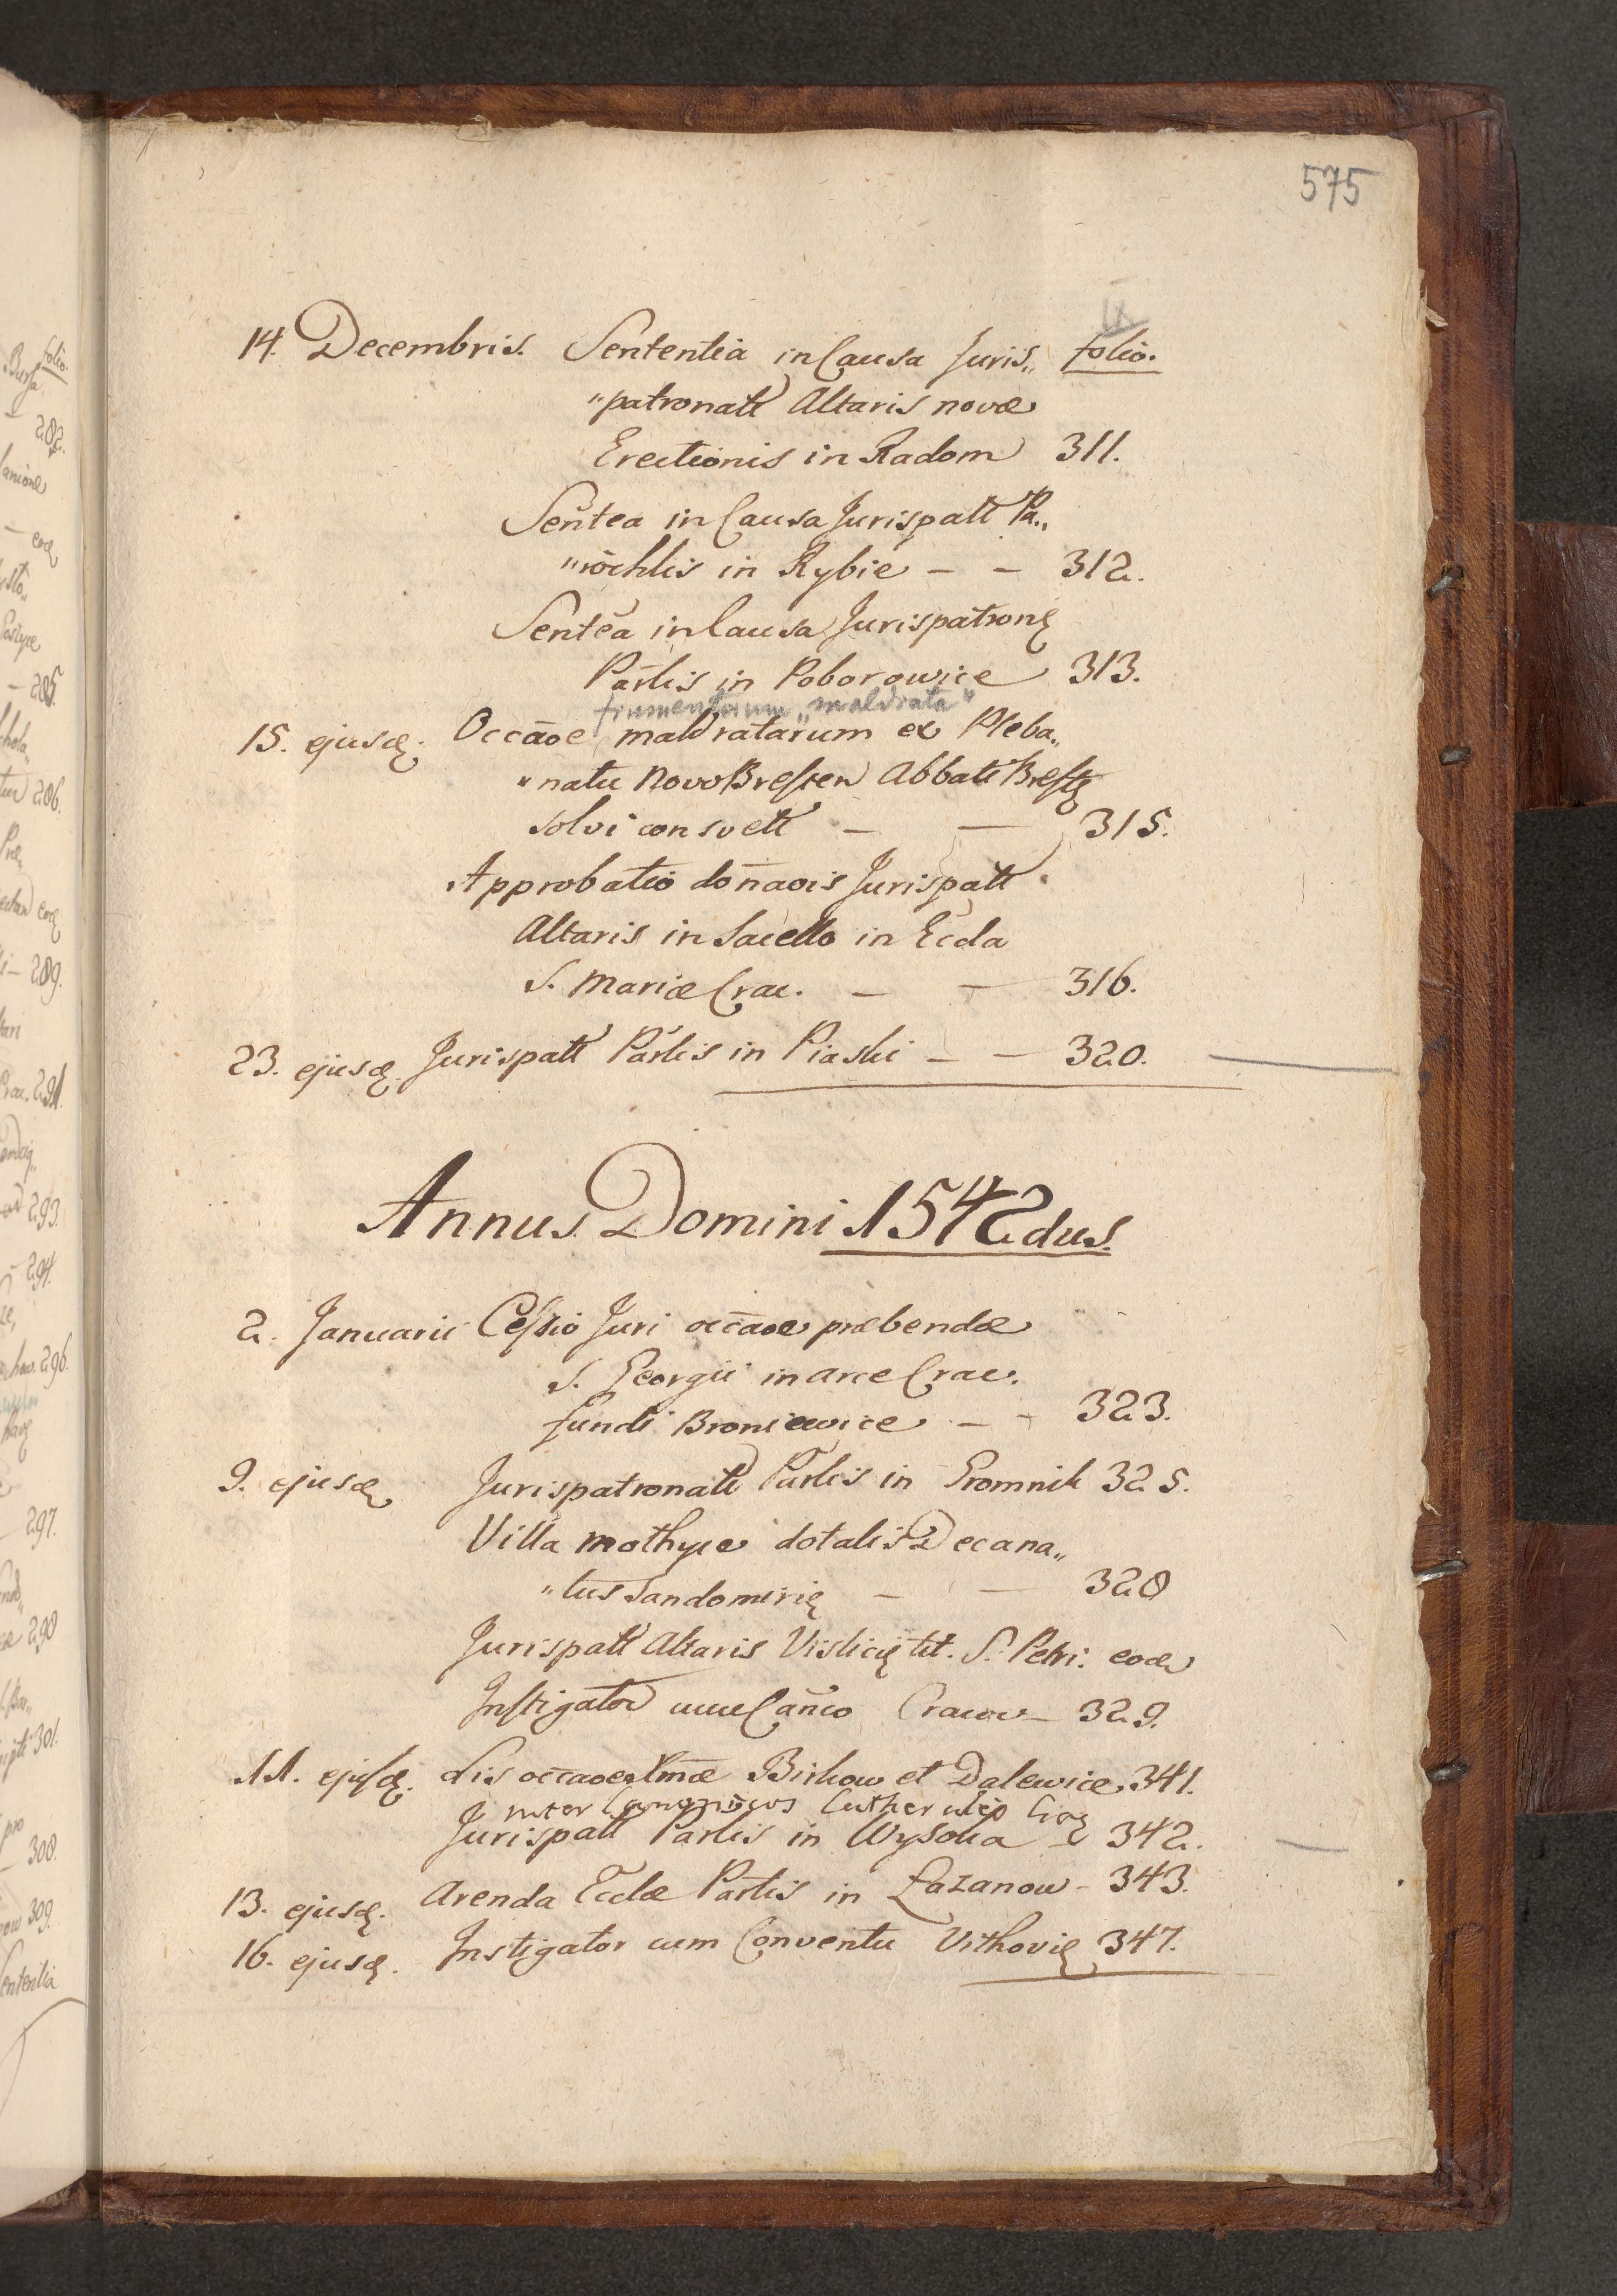 575
14. Decembris. Sententia in Causa Juris„ folio.
"patronatt Altaris novæ
Erectionis in Radom 311.
Senñtea in Causa Jurispatt Pa„
"rōchlis in Rybie — — 312.
Senteā in Causa Jurispatrong
Partis in Poborowice 313.
frumentarum „maldrata"
15. ejusdę. Occāoe maldratarum ex Pleba„
"natu Novo Bresten Abbatt Brestę
solvi consvett — — 315.
Approbatio donãois Jurispatt
Altaris in Sacello in Eccla
S. Mariæ Crac. — — 316.
23. ejusdę. Jurispatt Partis in Piaski — — 320.
Annus Domini 1542dus.
2. Januarii Cessio Juri occãoe præbendæ
S. Georgii in arce Crac.
fundi Broniewice — — 323.
9. ejusdę Jurispatronatt Partis in Gromnik 325.
Villa Mothyce dotalis Decana„
"tus Sandomirię — — 328
Jurispatt Altaris Vislicię tit. S. Petri. eodę
Instigator cum Cañco Cracov — 329.
11. ejusdę. Lis occãoe Xmæ Birkow et Dalewice. 341.
inter Canonicos
Jurispatt Partis in Wysoka — 342.
13. ejusdę. Arenda Ecclæ Partis in Łazanow — 343.
16. ejusdę. Instigator cum Conventu Vithovię 347.